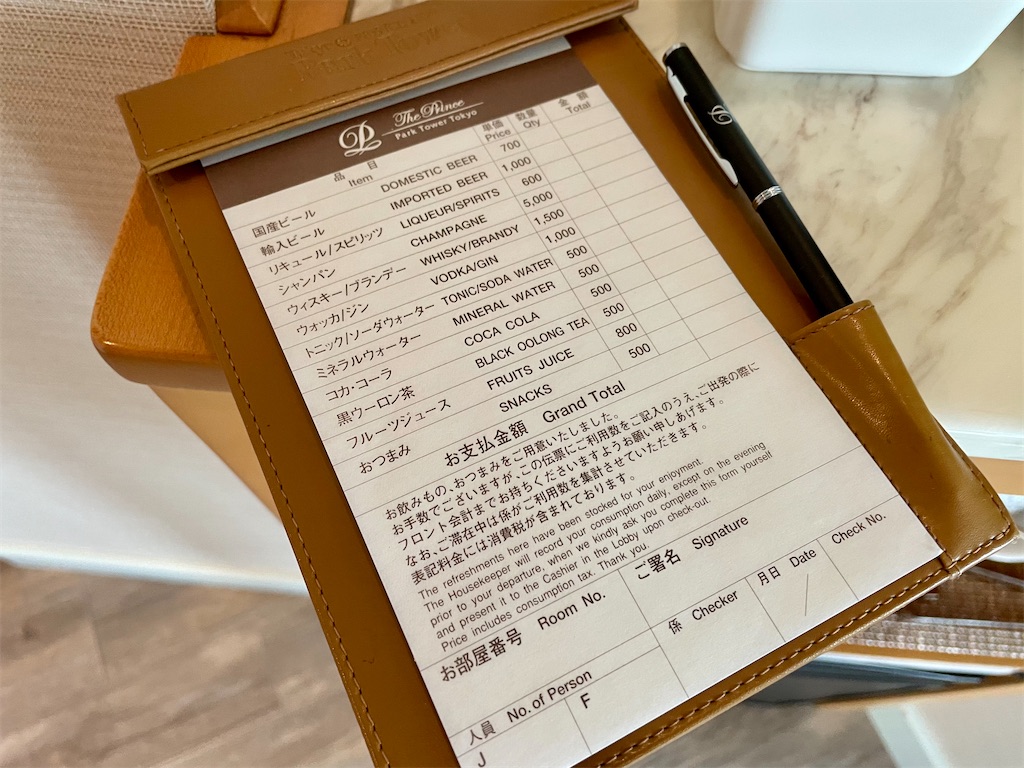 The Prince
Park Tower Tokyo
品 目 Item 単価 Price 数量 Qty 金額 Total
国産ビール DOMESTIC BEER 700
輸入ビール IMPORTED BEER 1,000
リキュール/スピリッツ LIQUEUR/SPIRITS 600
シャンパン CHAMPAGNE 5,000
ウィスキー/ブランデー WHISKY/BRANDY 1,500
ウォッカ/ジン VODKA/GIN 1,000
トニック/ソーダウォーター TONIC/SODA WATER 500
ミネラルウォーター MINERAL WATER 500
コカ・コーラ COCA COLA 500
黒ウーロン茶 BLACK OOLONG TEA 500
フルーツジュース FRUITS JUICE 800
おつまみ SNACKS 500
お支払金額 Grand Total
お飲みもの、おつまみをご用意いたしました。
お手数でございますが、この伝票にご利用数をご記入のうえ、ご出発の際に
フロント会計までお持ちくださいますようお願い申しあげます。
なお、ご滞在中は係がご利用数を集計させていただきます。
表記料金には消費税が含まれております。
The refreshments here have been stocked for your enjoyment.
The Housekeeper will record your consumption daily, except on the evening
prior to your departure, when we kindly ask you complete this form yourself
and present it to the Cashier in the Lobby upon check-out.
Price includes consumption tax. Thank you.
お部屋番号 Room No. ご署名 Signature
人員 No. of Person 係 Checker 月日 Date Check No.
J F /